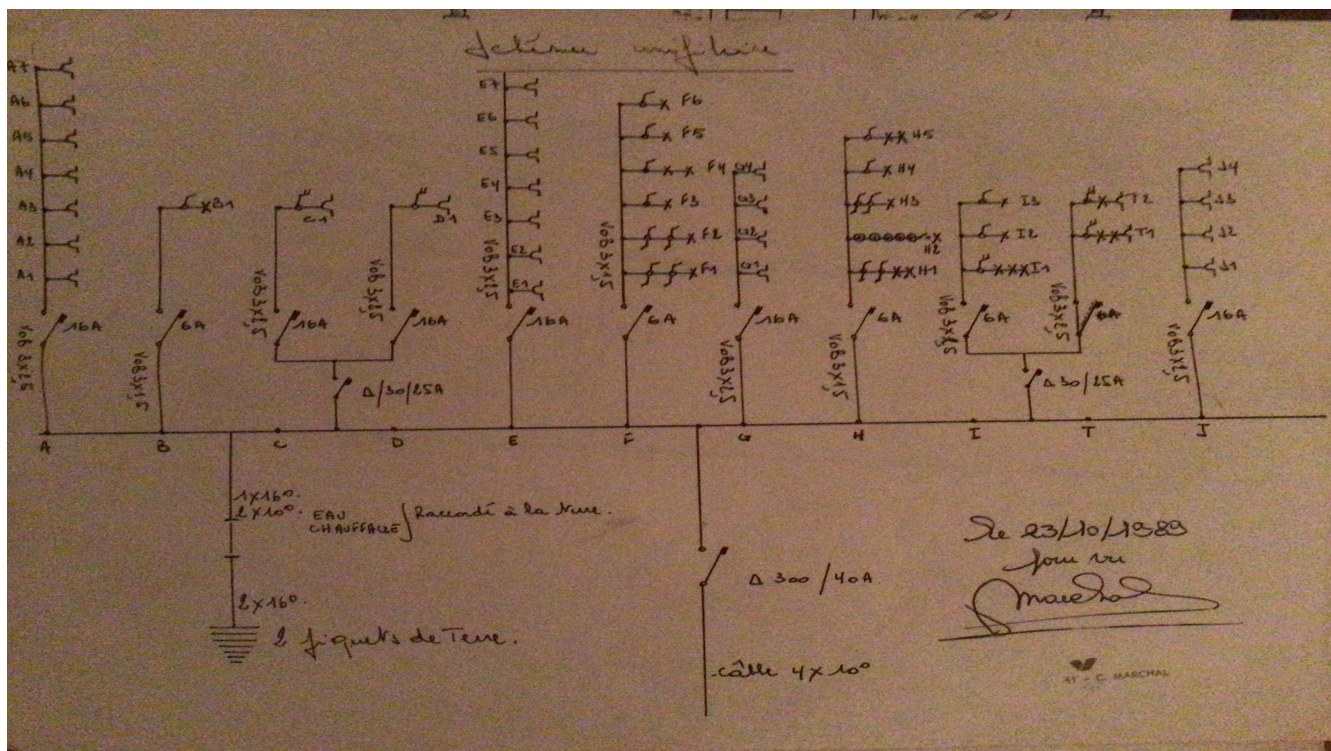 Schéma unifilaire
A7
A6
A5
A4
A3
A2
A1
Vob 3x2,5
16A
B1
Vob 3x1,5
6A
C1
Vob 3x2,5
16A
D1
Vob 3x2,5
16A
Δ/30/25A
E7
E6
E5
E4
E3
E2
E1
Vob 3x2,5
16A
F6
F5
F4
F3
F2
F1
Vob 3x1,5
6A
G4
G3
G2
G1
Vob 3x2,5
16A
H5
H4
H3
H2
H1
Vob 3x1,5
6A
I3
I2
I1
Vob 3x2,5
6A
T2
T1
Vob 3x1,5
6A
Δ30/25A
J4
J3
J2
J1
Vob 3x2,5
16A
A B C D E F G H I T J
1x16°.
2x10°. EAU CHAUFFAGE Raccordé à la
2x16°.
2 piquets de Terre.
Δ 300/40A.
câble 4x10°
Le 23/10/1989
pour vu
Marchal
C. MARCHAL